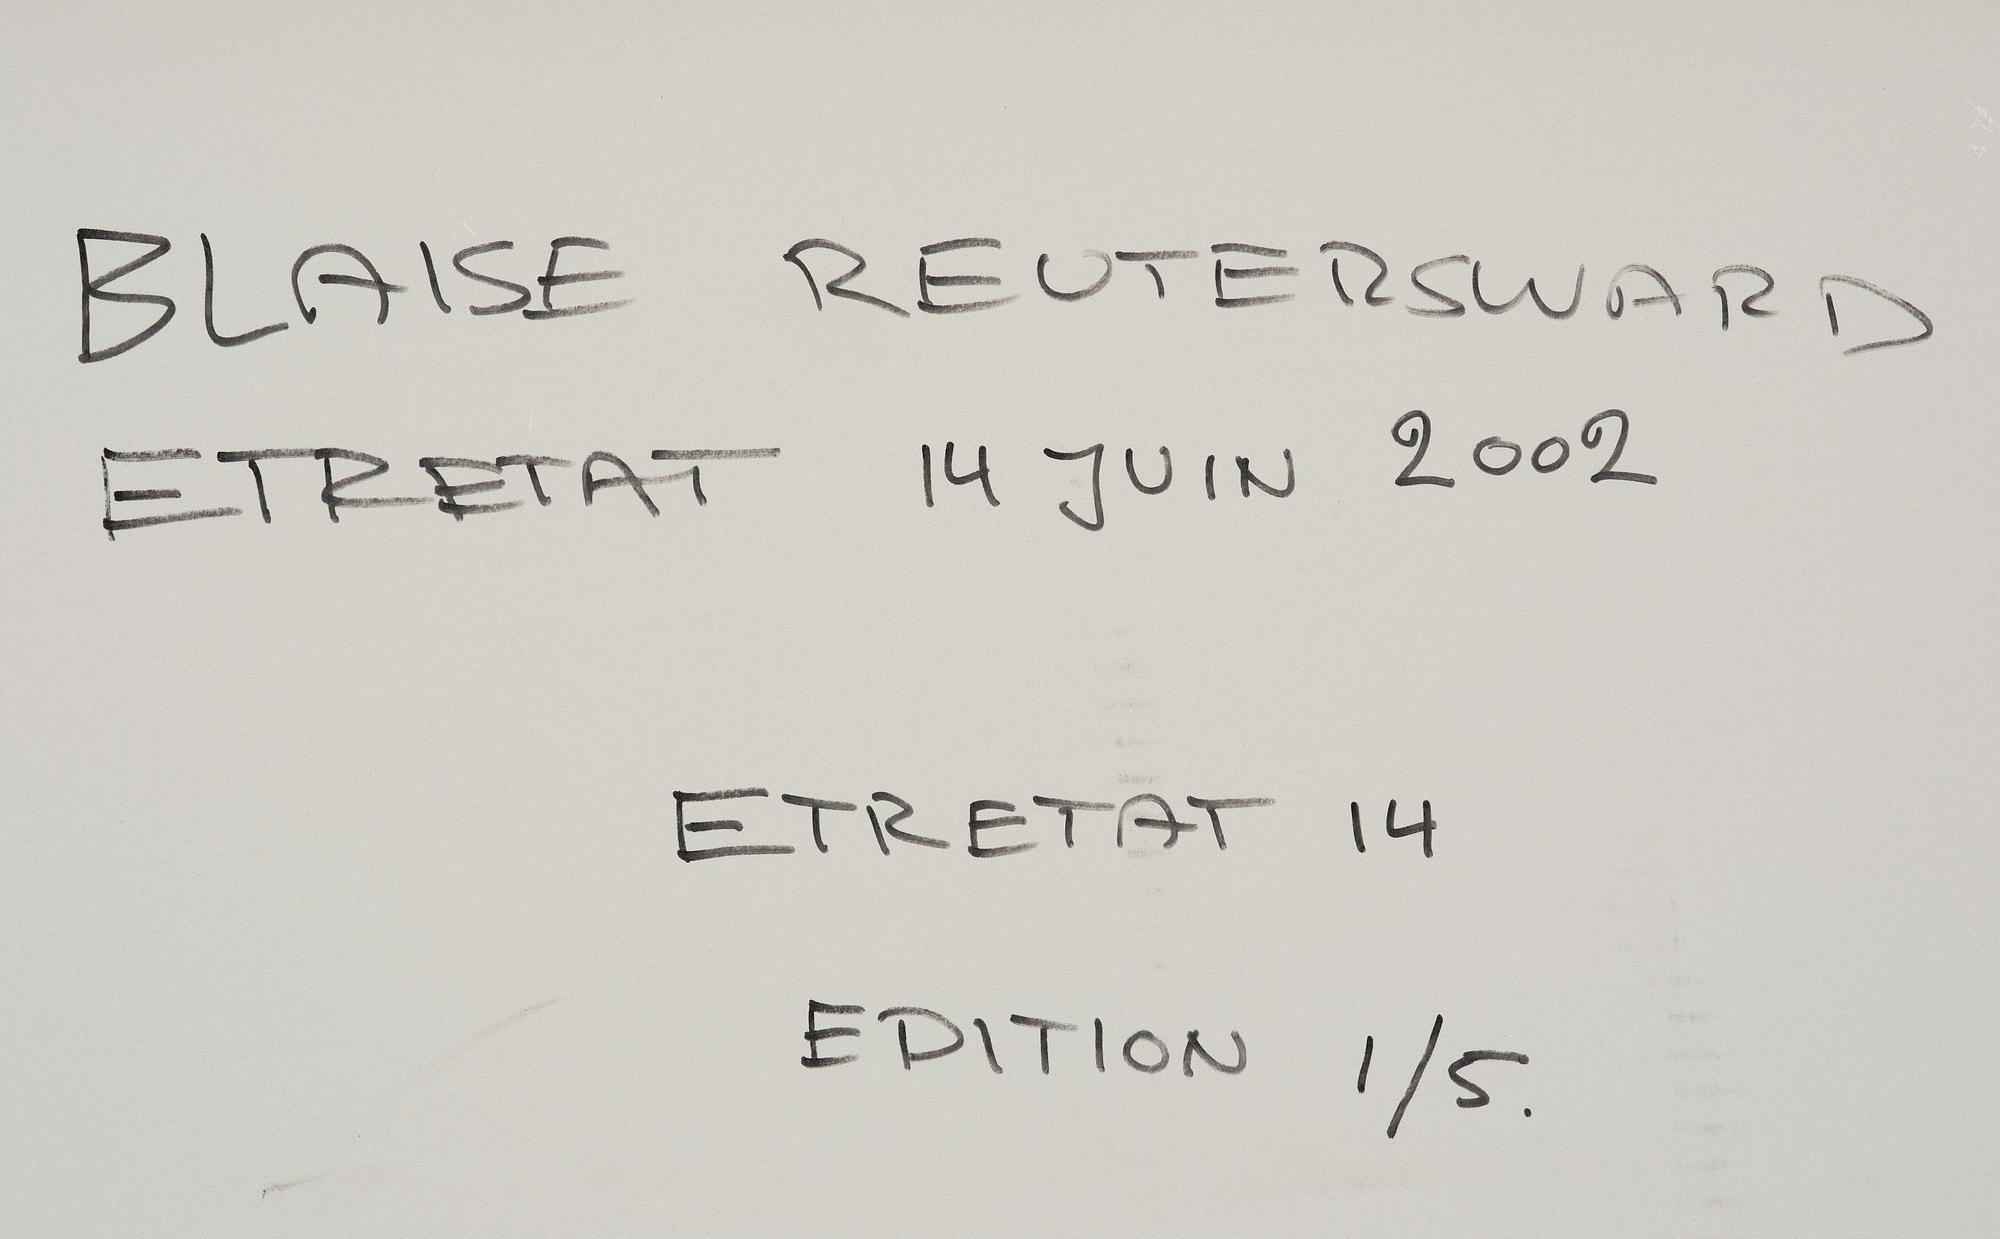 BLAISE REUTERSWARD
ETRETAT 14 JUIN 2002
ETRETAT 14
EDITION 1/5.